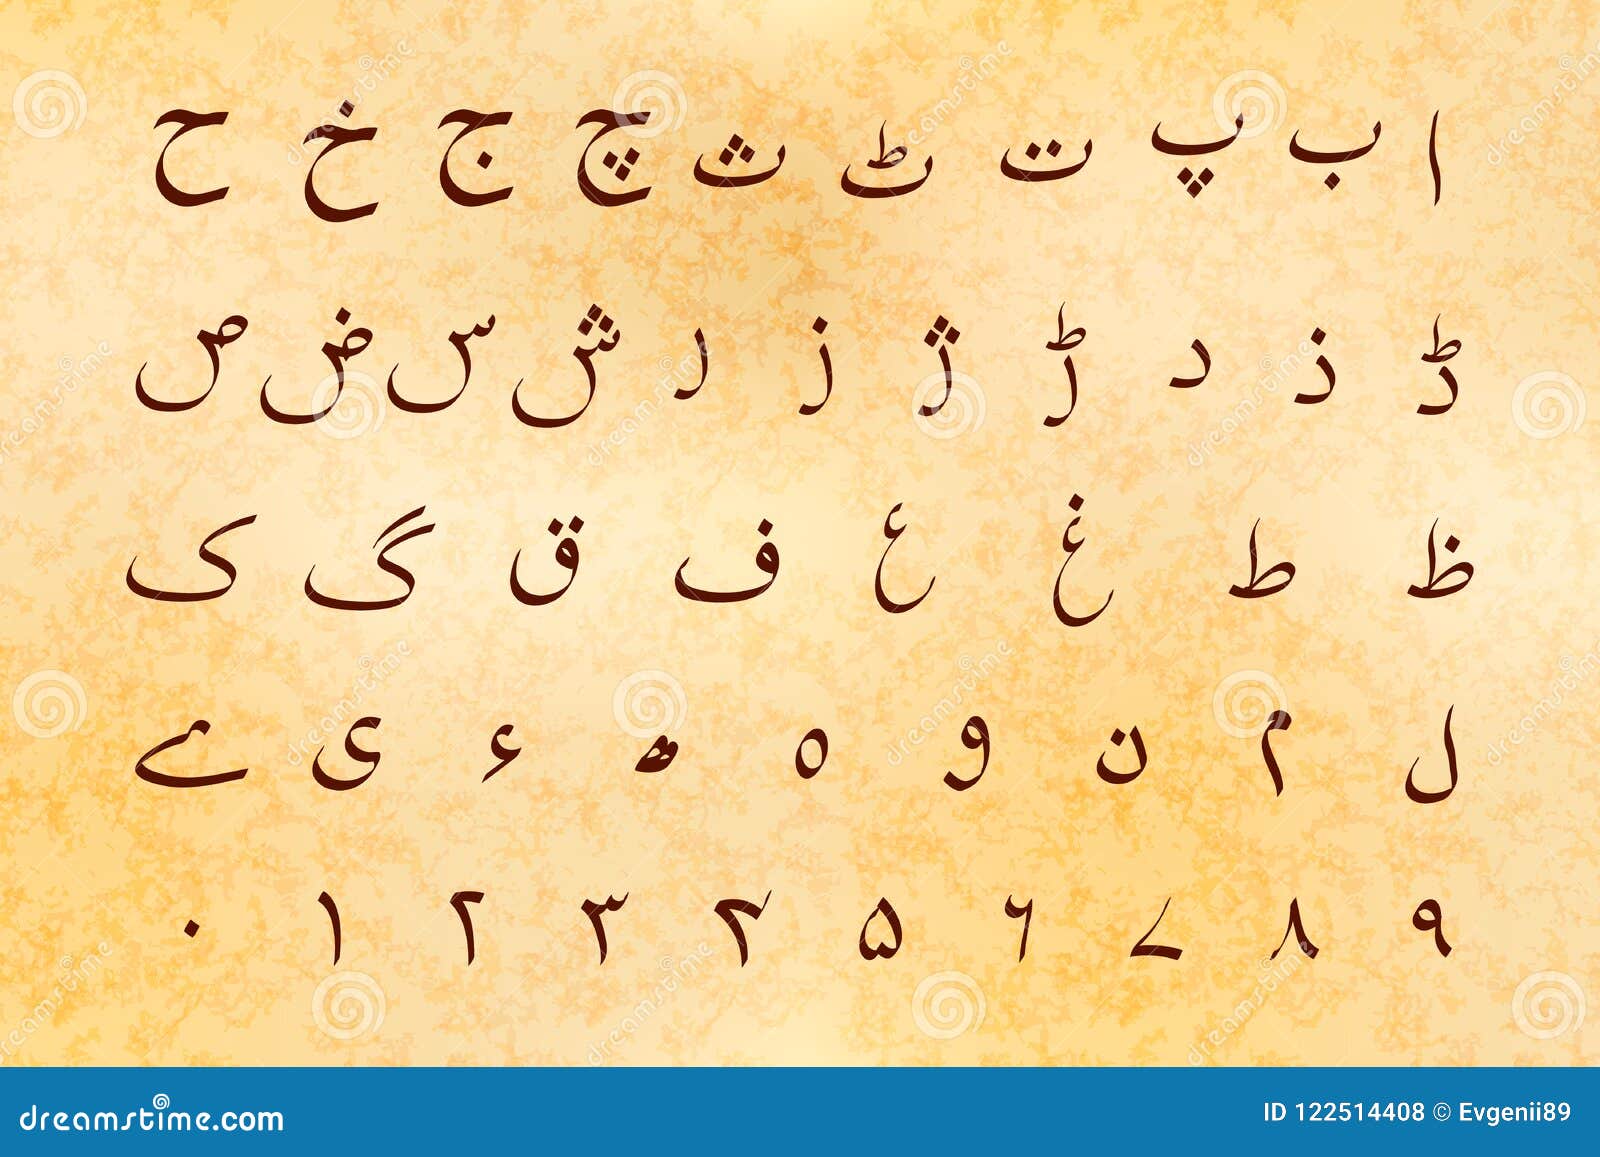 ا ب پ ت ٹ ث چ ج خ ح
ڈ ذ د ڑ ژ ز ر ش س ض ص
ظ ط غ ع ف ق گ ک
ل م ن و ہ ھ ء ی ے
۰ ۱ ۲ ۳ ۴ ۵ ۶ ۷ ۸ ۹
dreamstime.com
ID 122514408 © Evgenii89